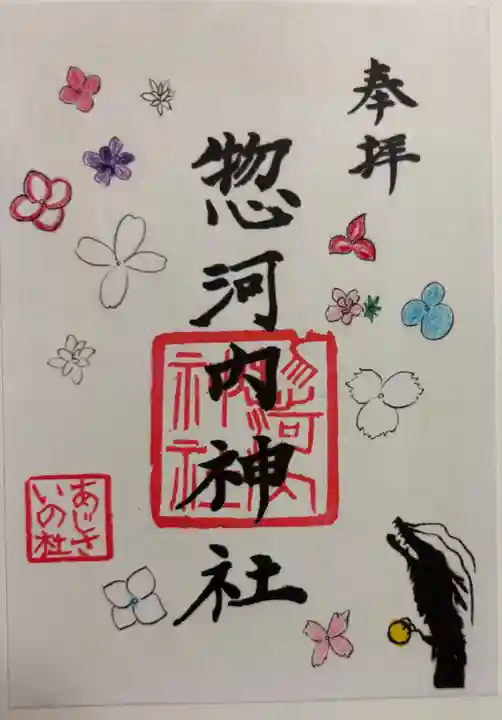 奉拝
惣河内神社
惣河内
神社
あじさ
いの杜